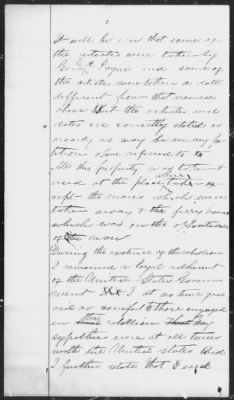 2
It will be seen that some of
the articles were taken by
Payne and some of
the articles were taken a date
different from that named
above But the articles and
dates are correctly stated as
nearly as may be in my pe-
titions above referred to
All this property was taken &
used at the place where taken ex-
cept the mares which were
taken away & the ferry
which was on the opposite side
of the river
During the existence of the rebellion
I remained a loyal adherent
of the United States Govern-
ment I at no time gave
aid or comfort to those engaged
in the rebellion My
sympathies were at all times
with the United States And
I further state that I